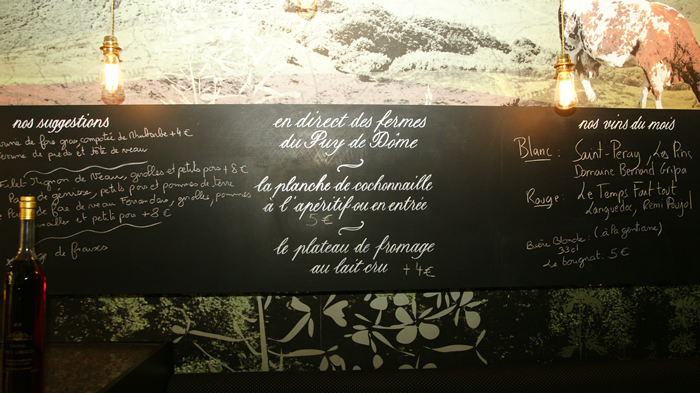 nos suggestions
de foie gras compotée de Rhubarbe + 4 €
de pieds et tête de veau
Filet Mignon de Veau, girolles et petits pois + 8 €
de génisse, petits pois et pommes de terre
de ris de veau girolles, pommes
et petits pois + 8 €
de fraises
en direct des fermes
du Puy de Dôme
la planche de cochonnaille
à l'apéritif ou en entrée
5 €
le plateau de fromage
au lait cru + 4 €
nos vins du mois
Blanc : Saint-Peray, Les Pins
Domaine Bernard Gripa
Rouge : Le Temps Fait tout
Languedoc, Remi Pujol
Bière Blonde : (à la gentiane)
33cl
Le bougnat. 5 €